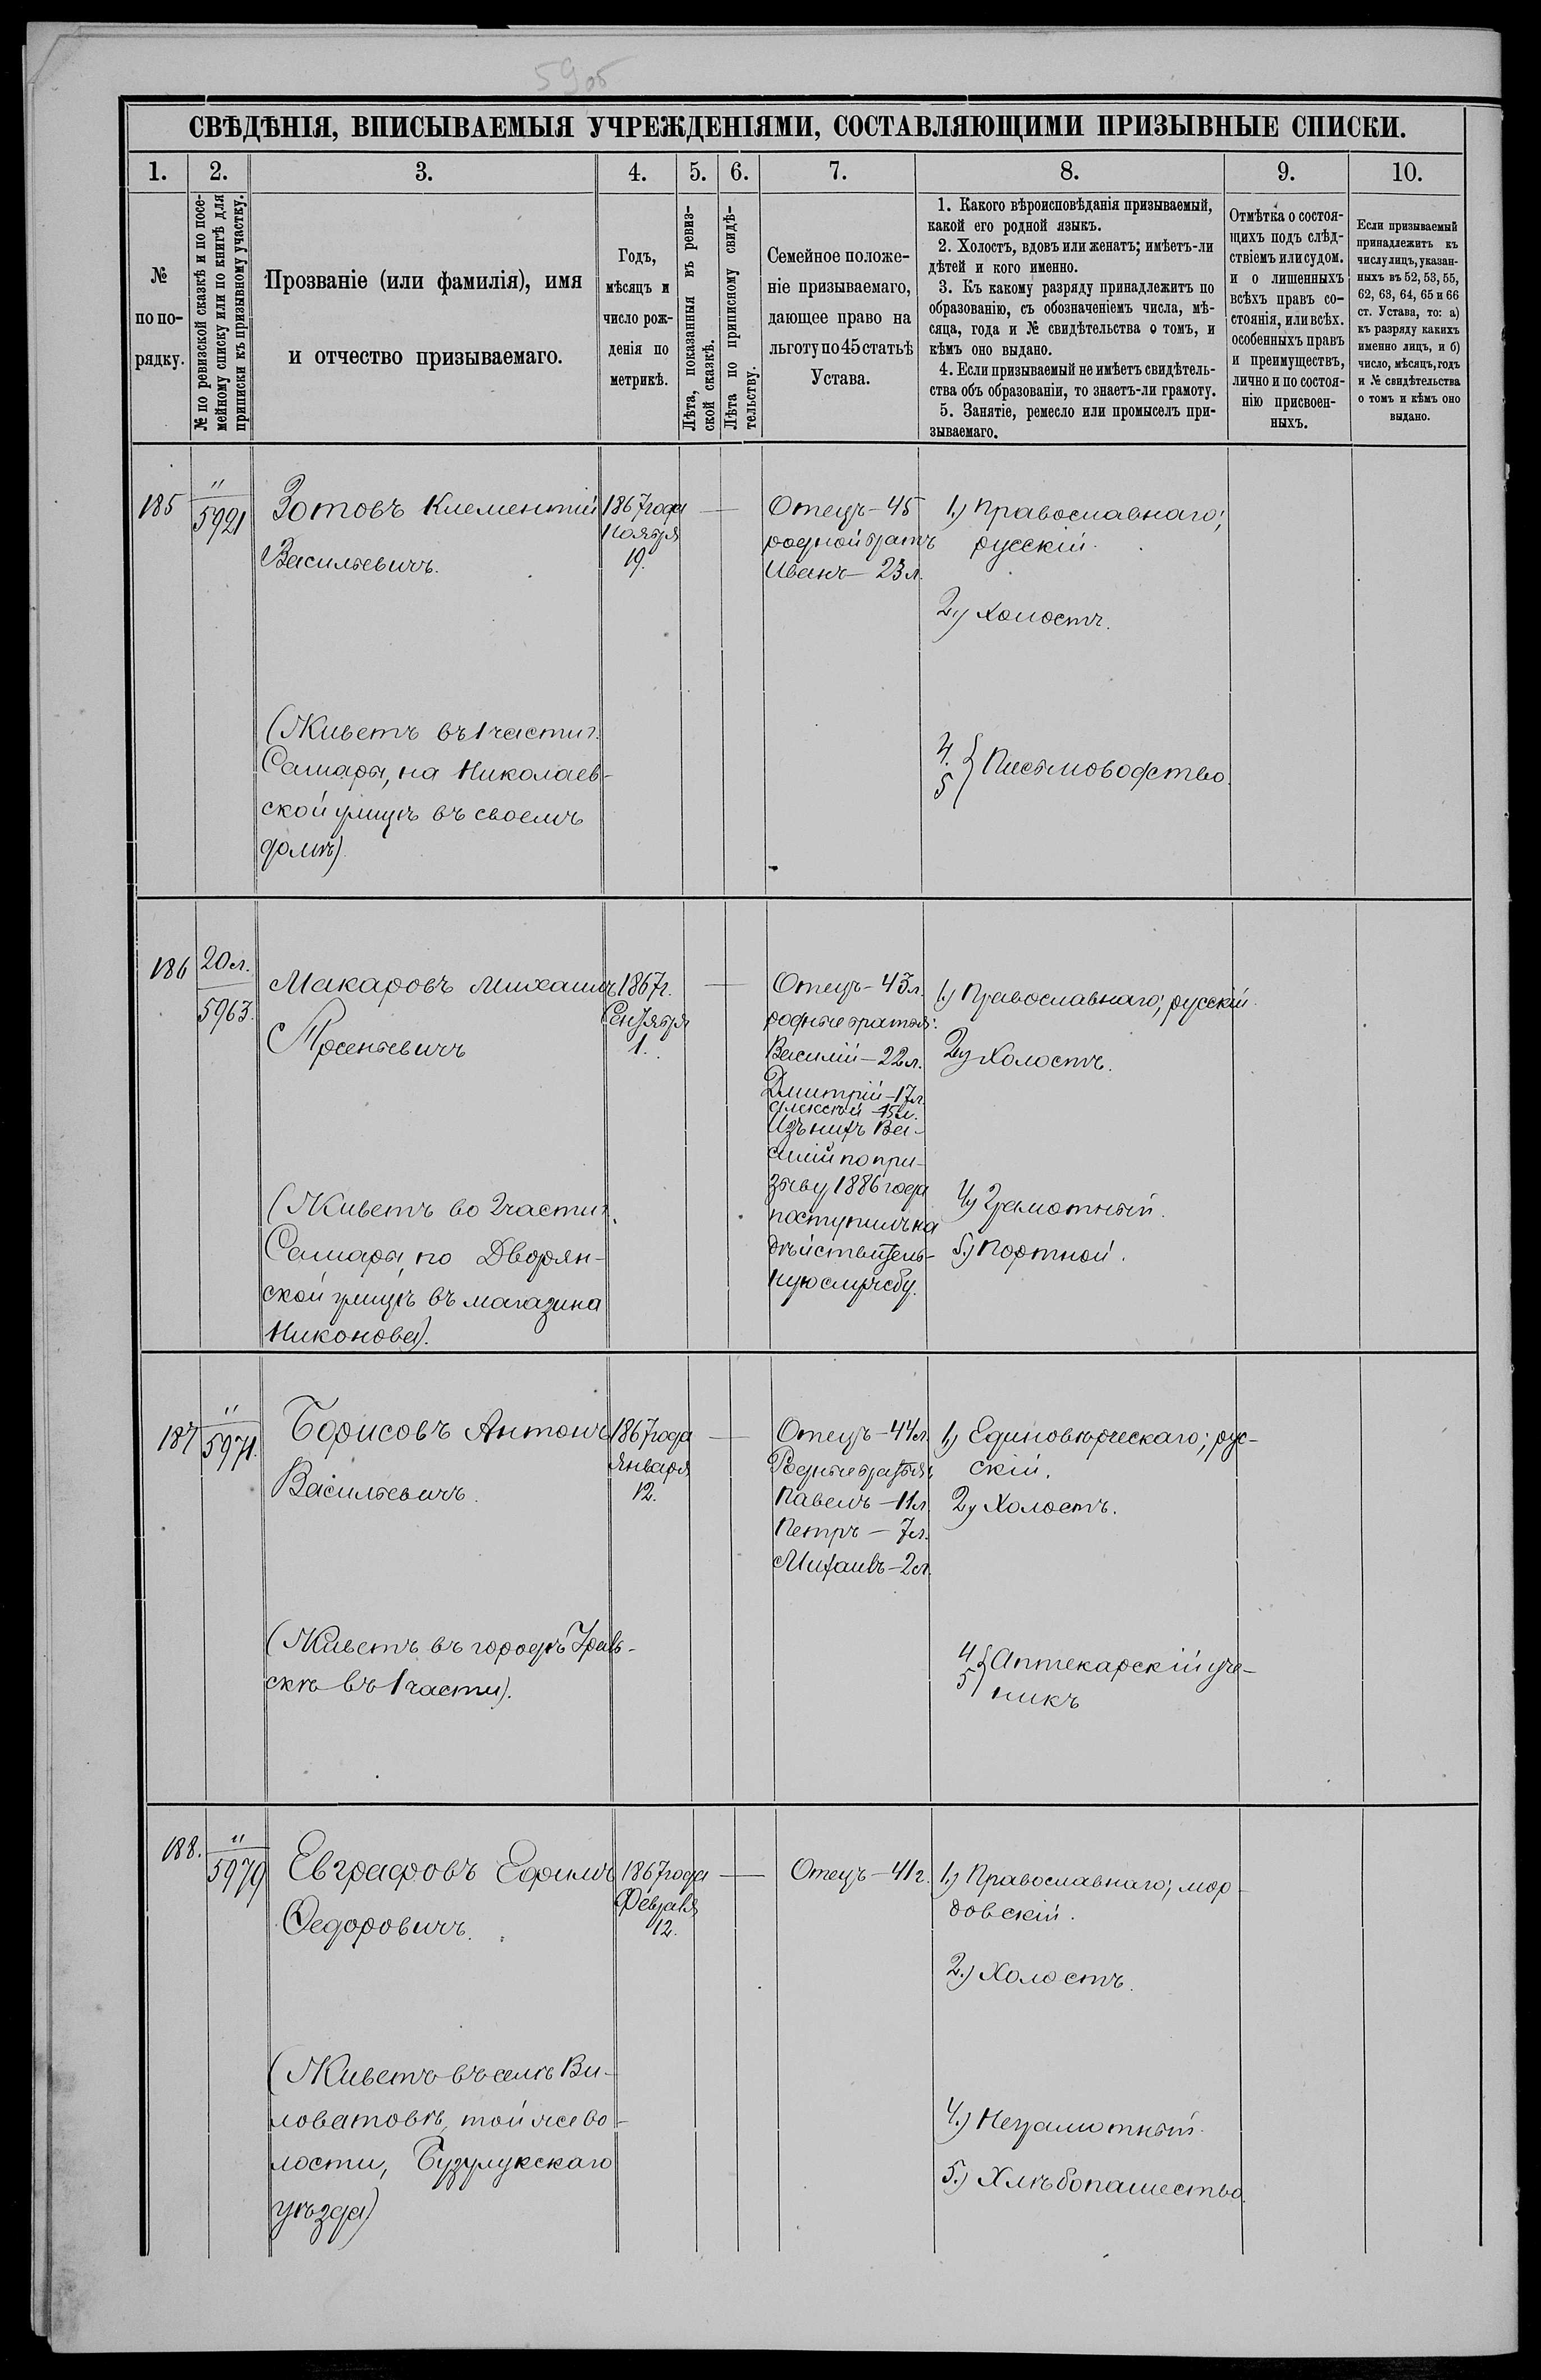 59 об
СВѢДѢНІЯ, ВПИСЫВАЕМЫЯ УЧРЕЖДЕНІЯМИ, СОСТАВЛЯЮЩИМИ ПРИЗЫВНЫЕ СПИСКИ.
1. 2. 3. 4. 5. 6. 7. 8. 9. 10.
№
по по-
рядку.
№ по ревизской сказкѣ и по посе-
мейному списку или по книгѣ для
приписки къ призывному участку.
Прозваніе (или фамилія), имя
и отчество призываемаго.
Годъ,
мѣсяцъ и
число рож-
денія по
метрикѣ.
Лѣта, показанныя въ ревиз-
ской сказкѣ.
Лѣта по приписному свидѣ-
тельству.
Семейное положе-
ніе призываемаго,
дающее право на
льготу по 45 статьѣ
Устава.
1. Какого вѣроисповѣданія призываемый,
какой его родной языкъ.
2. Холостъ, вдовъ или женатъ; имѣетъ-ли
дѣтей и кого именно.
3. Къ какому разряду принадлежитъ по
образованію, съ обозначеніемъ числа, мѣ-
сяца, года и № свидѣтельства о томъ, и
кѣмъ оно выдано.
4. Если призываемый не имѣетъ свидѣтель-
ства объ образованіи, то знаетъ-ли грамоту.
5. Занятіе, ремесло или промыселъ при-
зываемаго.
Отмѣтка о состоя-
щихъ подъ слѣд-
ствіемъ или судом.
и о лишенныхъ
всѣхъ правъ со-
стоянія, или всѣх.
особенныхъ правъ
и преимуществъ,
лично и по состоя-
нію присвоен-
ныхъ.
Если призываемый
принадлежитъ къ
числу лицъ, указан-
ныхъ въ 52, 53, 55,
62, 63, 64, 65 и 66
ст. Устава, то: а)
къ разряду какихъ
именно лицъ, и б)
число, мѣсяцъ, годъ
и № свидѣтельства
о томъ и кѣмъ оно
выдано.
185
"
5921
Зотовъ Клементій
Васильевичъ.
(Живетъ въ 1 части г.
Самары, на Николаев-
ской улицѣ въ своемъ
домѣ)
1867 года
Ноября
19.
Отецъ - 45
родной братъ
Иванъ - 23 л.
1.) Православнаго;
русскій.
2.) Холостъ.
4.
5 } Письмоводство.
186
20 л.
5963.
Макаровъ Михаилъ
Арсеньевичъ
(Живетъ во 2 части г.
Самары, по Дворян-
ской улицѣ въ магазина
Никонова).
1867 г.
Сентября
1.
Отецъ - 43 л.
родные братья:
Василій - 22 л.
Дмитрій - 17 л.
Алексѣй - 15 л.
Изъ нихъ Ва-
силій по при-
зыву 1886 года
поступилъ на
дѣйствитель-
ную службу.
1.) Православнаго; русскій.
2.) Холостъ.
4.) Грамотный.
5.) Портной.
187
"
5971.
Борисовъ Антонъ
Васильевичъ.
(Живетъ въ городѣ Ураль-
скѣ въ 1 части).
1867 года
Января
12.
Отецъ - 44 л.
Родные братья
Павелъ - 11 л.
Петръ - 7 л.
Михаилъ - 2 л.
1.) Единовѣрческаго; рус-
скій.
2.) Холостъ.
4
5 } Аптекарскій уче-
никъ
188.
"
5979
Евграфовъ Ефимъ
Федоровичъ.
(Живетъ въ селѣ Ви-
ловатовѣ, той же во-
лости, Бузулукскаго
уѣзда)
1867 года
Февраля
12.
Отецъ - 41 г.
1.) Православнаго; мор-
довскій.
2.) Холостъ.
4.) Неграмотный.
5.) Хлѣбопашество.